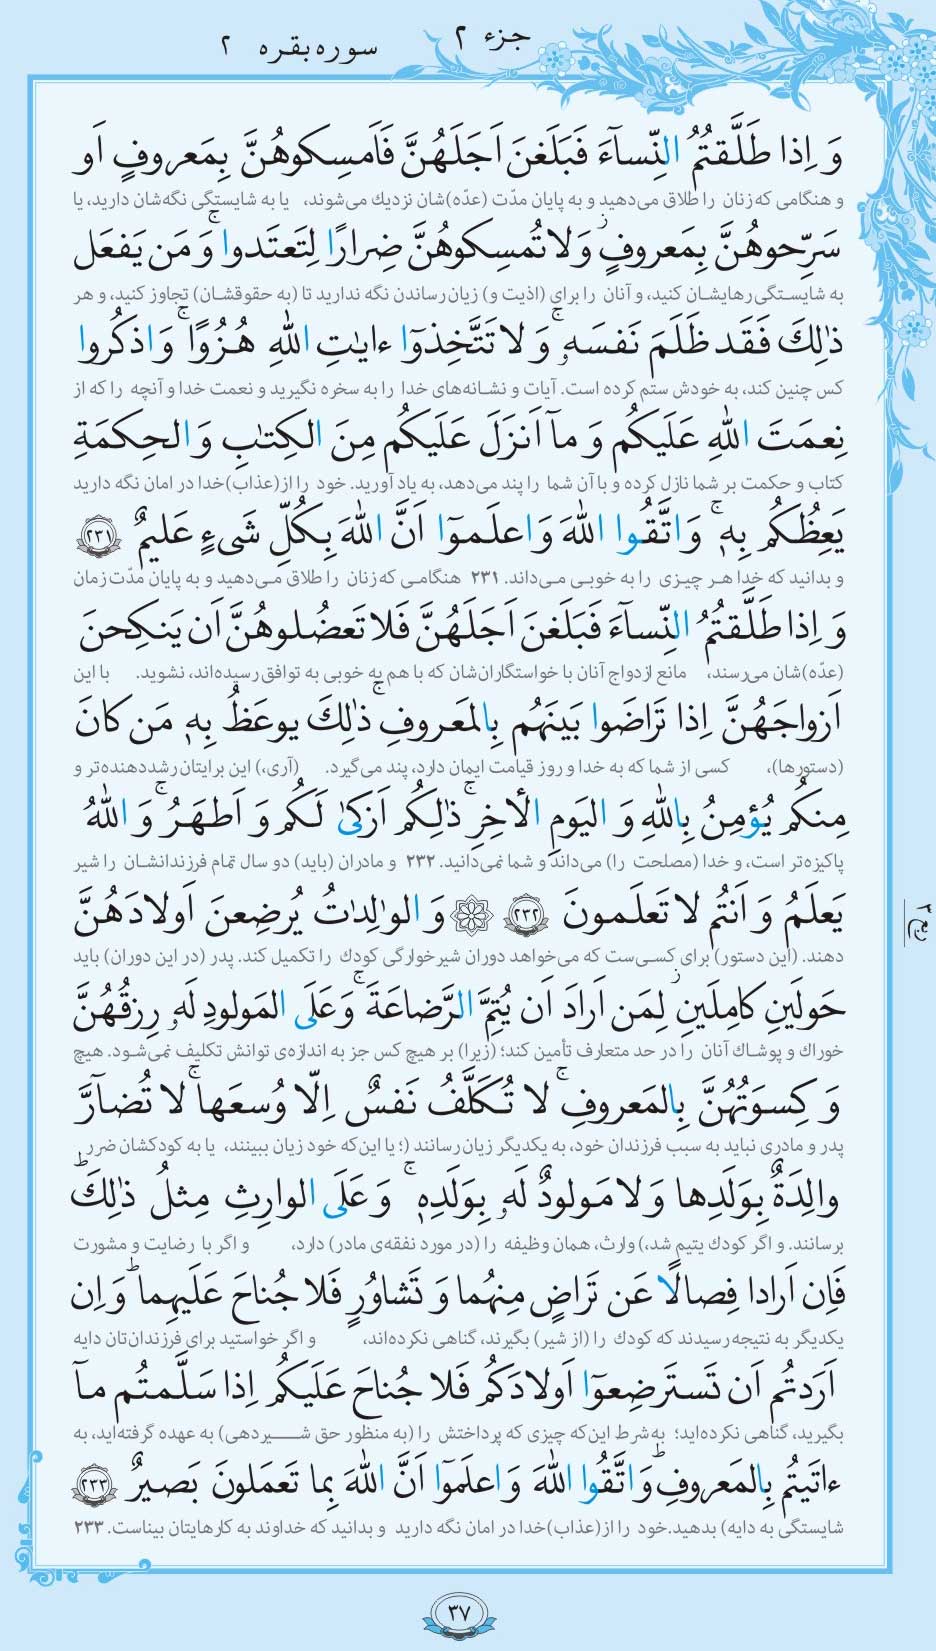 جزء ۲
سوره بقره ۲
وَ اِذا طَلَّقتُمُ النِّسآءَ فَبَلَغنَ اَجَلَهُنَّ فَاَمسِكوهُنَّ بِمَعروفٍ اَو
و هنگامی که زنان را طلاق می‌دهید و به پایان مدّت (عدّه)شان نزدیك می‌شوند، یا به شایستگی نگه‌شان دارید، یا
سَرِّحوهُنَّ بِمَعروفٍ ۚ وَ لا تُمسِكوهُنَّ ضِرارًا لِتَعتَدوا ۚ وَ مَن يَفعَل
به شایستگی رهایشان کنید، و آنان را برای (اذیت و) زیان رساندن نگه ندارید تا (به حقوقشان) تجاوز کنید، و هر
ذٰلِكَ فَقَد ظَلَمَ نَفسَه ۚ وَ لا تَتَّخِذوٓا ءايٰتِ اللهِ هُزُوًا ۚ وَ اذكُروا
کس چنین کند، به خودش ستم کرده است. آیات و نشانه‌های خدا را به سخره نگیرید و نعمت خدا و آنچه را که از
نِعمَتَ اللهِ عَلَيكُم وَ مآ اَنزَلَ عَلَيكُم مِنَ الكِتٰبِ وَ الحِكمَةِ
کتاب و حکمت بر شما نازل کرده و با آن شما را پند می‌دهد، به یاد آورید. خود را از(عذاب)خدا در امان نگه دارید
يَعِظُكُم بِه ۚ وَ اتَّقُوا اللهَ وَ اعلَموٓا اَنَّ اللهَ بِكُلِّ شَیءٍ عَليمٌ ۲۳۱
و بدانید که خدا هر چیزی را به خوبی می‌داند. ۲۳۱ هنگامی که زنان را طلاق می‌دهید و به پایان مدّت زمان
وَ اِذا طَلَّقتُمُ النِّسآءَ فَبَلَغنَ اَجَلَهُنَّ فَلا تَعضُلوهُنَّ اَن يَنكِحنَ
(عدّه)شان می‌رسند، مانع ازدواج آنان با خواستگاران‌شان که با هم به خوبی به توافق رسیده‌اند، نشوید. با این
اَزواجَهُنَّ اِذا تَراضَوا بَينَهُم بِالمَعروفِ ۗ ذٰلِكَ يوعَظُ بِه مَن كانَ
(دستورها)، کسی از شما که به خدا و روز قیامت ایمان دارد، پند می‌گیرد. (آری،) این برایتان رشددهنده‌تر و
مِنكُم يُؤمِنُ بِاللهِ وَ اليَومِ الأخِرِ ۗ ذٰلِكُم اَزكىٰ لَكُم وَ اَطهَرُ ۗ وَ اللهُ
پاکیزه‌تر است، و خدا (مصلحت را) می‌داند و شما نمی‌دانید. ۲۳۲ و مادران (باید) دو سال تمام فرزندانشان را شیر
يَعلَمُ وَ اَنتُم لا تَعلَمونَ ۲۳۲ وَ الوٰلِدٰتُ يُرضِعنَ اَولادَهُنَّ
دهند. (این دستور) برای کسی‌ست که می‌خواهد دوران شیرخوارگی کودك را تکمیل کند. پدر (در این دوران) باید
حَولَينِ كامِلَينِ ۖ لِمَن اَرادَ اَن يُتِمَّ الرَّضاعَةَ ۚ وَ عَلَى المَولودِ لَه رِزقُهُنَّ
خوراك و پوشاك آنان را در حد متعارف تأمین کند؛ (زیرا) بر هیچ کس جز به اندازه‌ی توانش تکلیف نمی‌شود. هیچ
وَ كِسوَتُهُنَّ بِالمَعروفِ ۚ لا تُكَلَّفُ نَفسٌ اِلّا وُسعَها ۚ لا تُضآرَّ
پدر و مادری نباید به سبب فرزندان خود، به یکدیگر زیان رسانند (؛ یا این‌که خود زیان ببینند، یا به کودکشان ضرر
والِدَةٌ بِوَلَدِها وَ لا مَولودٌ لَه بِوَلَدِه ۚ وَ عَلَى الوارِثِ مِثلُ ذٰلِكَ ۗ
برسانند. و اگر کودك یتیم شد،) وارث، همان وظیفه را (در مورد نفقه‌ی مادر) دارد، و اگر با رضایت و مشورت
فَاِن اَرادا فِصالًا عَن تَراضٍ مِنهُما وَ تَشاوُرٍ فَلا جُناحَ عَلَيهِما ۗ وَ اِن
یکدیگر به نتیجه رسیدند که کودك را (از شیر) بگیرند، گناهی نکرده‌اند، و اگر خواستید برای فرزندان‌تان دایه
اَرَدتُم اَن تَستَرضِعوٓا اَولادَكُم فَلا جُناحَ عَلَيكُم اِذا سَلَّمتُم مآ
بگیرید، گناهی نکرده‌اید؛ به شرط این‌که چیزی که پرداختش را (به منظور حق شیردهی) به عهده گرفته‌اید، به
ءاتَيتُم بِالمَعروفِ ۗ وَ اتَّقُوا اللهَ وَ اعلَموٓا اَنَّ اللهَ بِما تَعمَلونَ بَصيرٌ ۲۳۳
شایستگی به دایه) بدهید.خود را از(عذاب)خدا در امان نگه دارید و بدانید که خداوند به کارهایتان بیناست. ۲۳۳
ربع ۳
۳۷